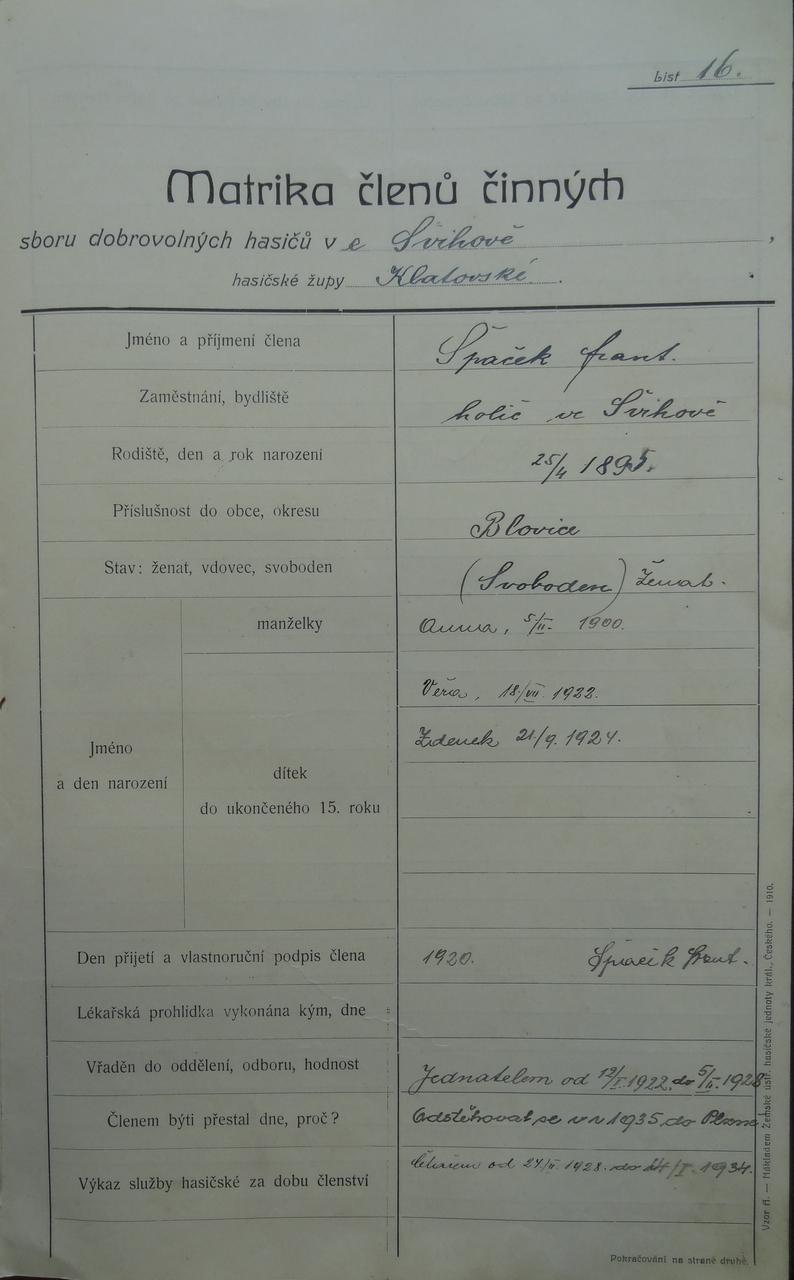 List 16.
Matrika členů činných
sboru dobrovolných hasičů v e Švihově,
hasičské župy Klatovské.
Jméno a příjmení člena Špaček frant.
Zaměstnání, bydliště holič ve Švihově
Rodiště, den a rok narození 25/4 1895.
Příslušnost do obce, okresu Blovice
Stav: ženat, vdovec, svoboden (Svoboden) Ženat.
manželky Anna, 5/II. 1900.
Věra, 18/VII. 1922.
Zdenek 21/9. 1924.
Jméno
a den narození
dítek
do ukončeného 15. roku
Den přijetí a vlastnoruční podpis člena 1920. Špaček frant.
Lékařská prohlídka vykonána kým, dne
Vřaděn do oddělení, odboru, hodnost Jednatelem od 12/I. 1922. do 5/II. 1928
Členem býti přestal dne, proč? Odstěhoval se v r 1935 do
Výkaz služby hasičské za dobu členství od 1928. do 1934.
Pokračování na straně druhé.
Vzor ř. — Nákladem Zemské ústř. hasičské jednoty král. Českého. — 1910.